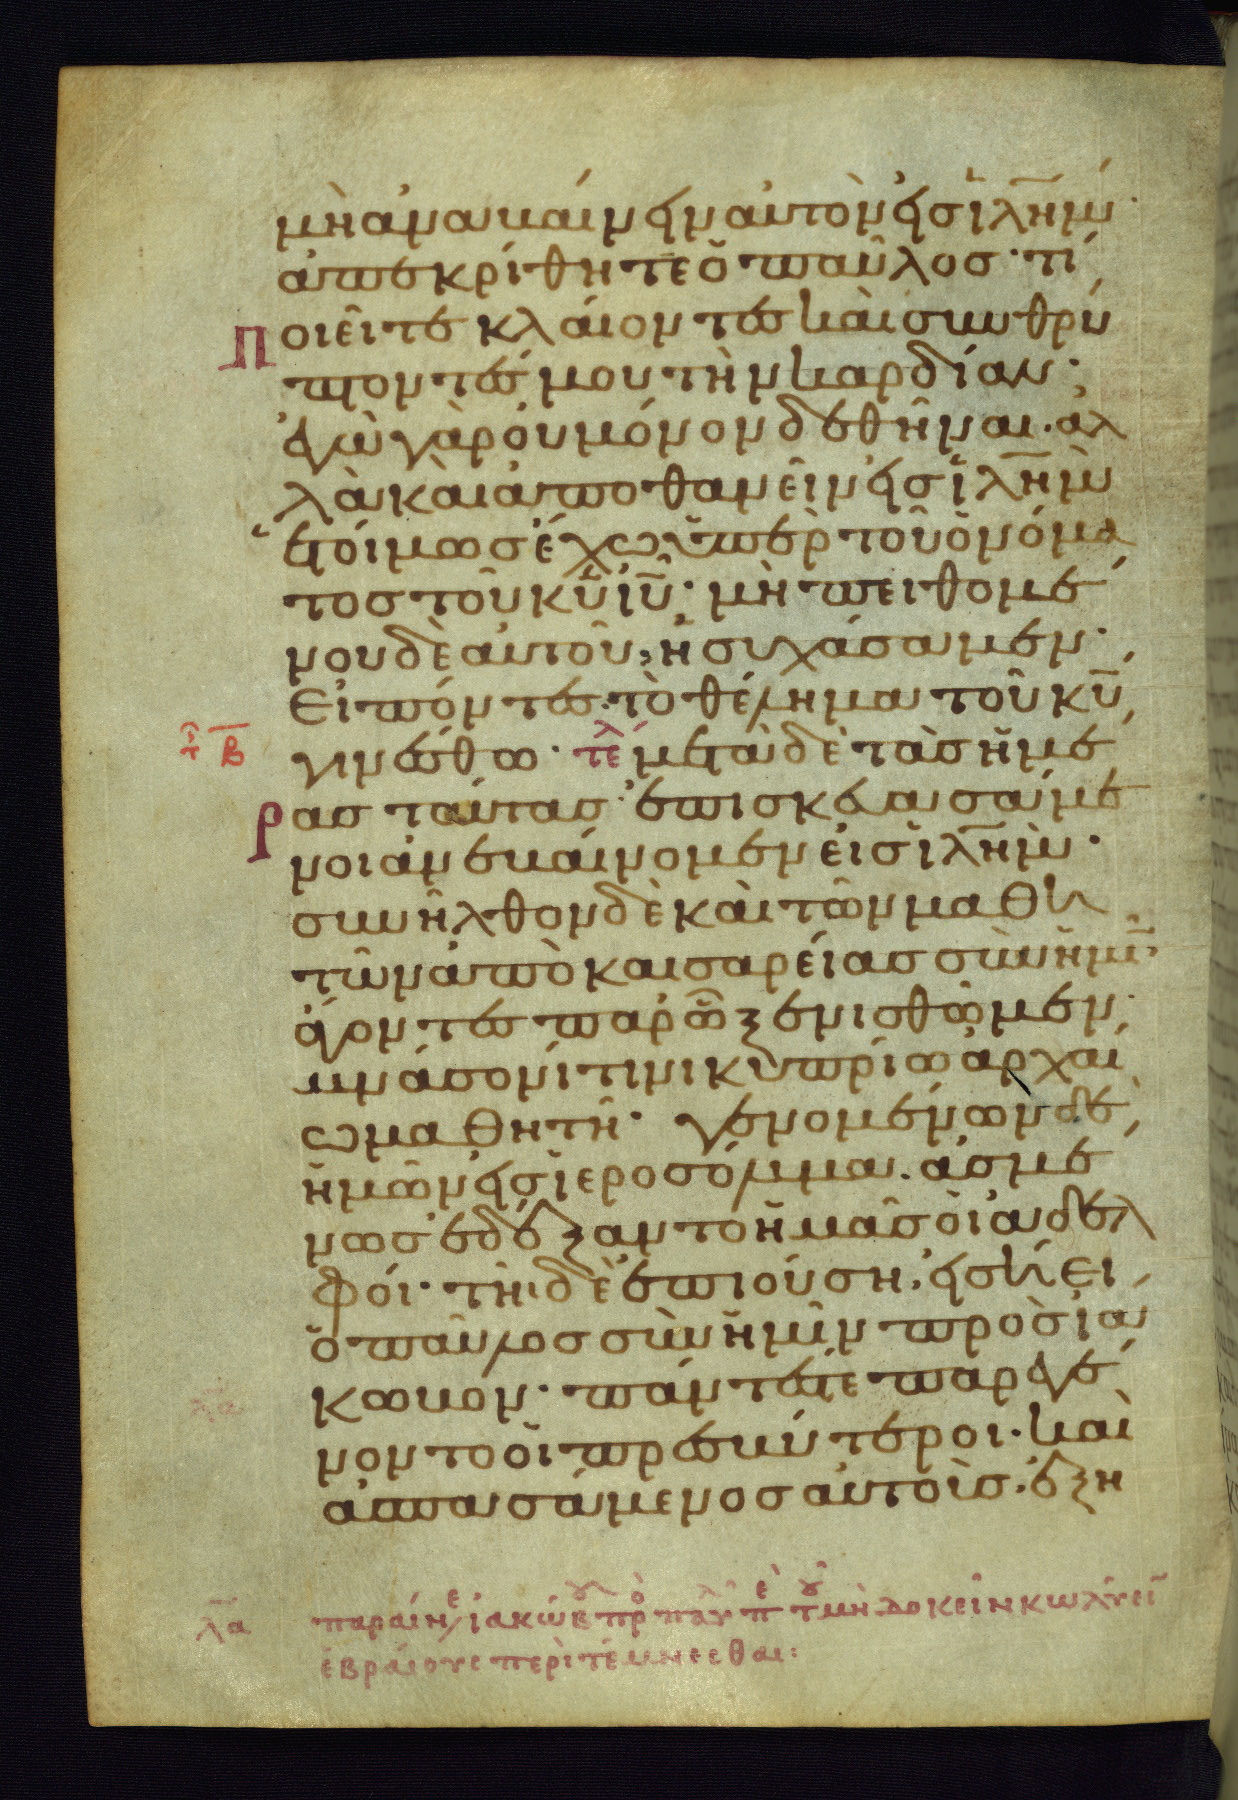 μὴ ἀναβαίνειν αὐτὸν εἰς ἱλ̅η̅μ̅·
ἀπεκρίθη τε ὁ παῦλος· τί
ποιεῖτε κλαίοντες καὶ συνθρύ
πτοντές μου τὴν καρδίαν·
ἐγὼ γὰρ οὐ μόνον δεθῆναι· ἀλ
λὰ καὶ ἀποθανεῖν εἰς ἱλ̅η̅μ̅
ἑτοίμως ἔχω ὑπὲρ τοῦ ὀνόμα
τος τοῦ κ̅υ̅ ἰ̅υ̅· μὴ πειθομέ
νου δὲ αὐτοῦ, ἡσυχάσαμεν·
Εἰπόντες· τὸ θέλημα τοῦ κ̅υ̅
τ β γινέσθω· τελ μετὰ δὲ τὰς ἡμέ
ρας ταύτας· ἐπισκευασάμε
νοι ἀνεβαίνομεν εἰς ἱλ̅η̅μ̅·
συνῆλθον δὲ καὶ τῶν μαθη
τῶν ἀπὸ καισαρείας σὺν ἡμῖν·
ἄγοντες παρ' ᾧ ξενισθῶμεν·
μνάσονί τινι κυπρίω ἀρχαί
ω μαθητῆ· γενομένων δὲ
ἡμῶν εἰς ἱεροσόλυμα· ἀσμέ
νως ἐδέξαντο ἡμᾶς οἱ ἀδελ
φοί· τῆ δὲ ἐπιούση, εἰσήει
ὁ παῦλος σὺν ἡμῖν πρὸς ἰά
κωβον· πάντές τε παρεγέ
νοντο οἱ πρεσβύτεροι· καὶ
ἀσπασάμενος αὐτοὺς· ἐξη
λ̅α̅ παραίνε ἰακώβου πρὸ παυλ περὶ τοῦ μὴ δοκεῖν κωλύειν
ἑβραίους περιτέμνεσθαι: